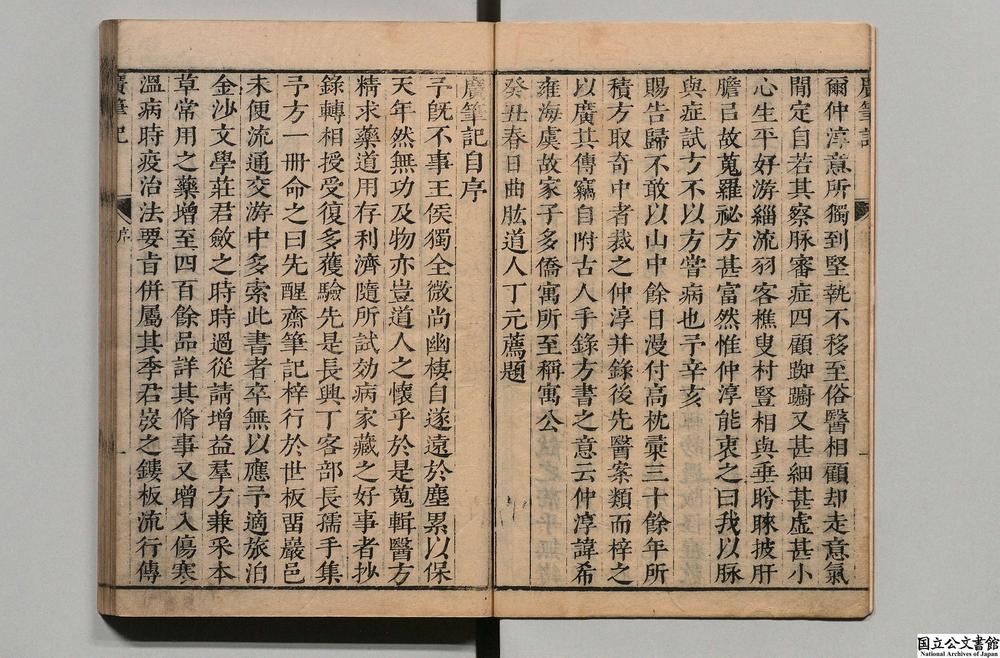 廣筆記
爾仲淳意所獨到堅執不移至俗醫相顧却走意氣
閒定自若其察脉審症四顧踟躕又甚細甚虛甚小
心生平好游緇流羽客樵叟村豎相與垂盼睞披肝
膽㠯故蒐羅祕方甚富然惟仲淳能衷之曰我以脉
與症試方不以方嘗病也予辛亥
賜告歸不敢以山中餘日漫付高枕彚三十餘年所
積方取奇中者裁之仲淳并錄後先醫案類而梓之
以廣其傳竊自附古人手錄方書之意云仲淳諱希
雍海虞故家子多僑寓所至稱寓公
癸丑春日曲肱道人丁元薦題
廣筆記自序
予旣不事王侯獨全微尚幽棲自遂遠於塵累以保
天年然無功及物亦豈道人之懷乎於是蒐輯醫方
精求藥道用存利濟隨所試効病家藏之好事者抄
錄轉相授受復多獲驗先是長興丁客部長孺手集
予方一冊命之曰先醒齋筆記梓行於世板畱巖邑
未便流通交游中多索此書者卒無以應予適旅泊
金沙文學莊君斂之時時過從請增益羣方兼采本
草常用之藥增至四百餘品詳其脩事又增入傷寒
溫病時疫治法要㫖併屬其季君弢之鏤板流行傳
廣筆記
序
一
国立公文書館
National Archives of Japan